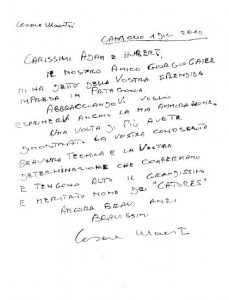 Cesare Maestri
CAMPIGLIO 1 DIC. 2010
CARISSIMI ADAM E HUBERT,
IL NOSTRO AMICO GIORGIO GAIER
MI HA DETTO DELLA VOSTRA SPLENDIDA
IMPRESA IN PATAGONIA.
ABBRACCIANDOVI VOGLIO
ESPRIMERVI ANCHE LA MIA AMMIRAZIONE.
UNA VOLTA DI PIÙ AVETE
DIMOSTRATO LA VOSTRA CONOSCIUTA
BRAVURA TECNICA E LA VOSTRA
DETERMINAZIONE CHE CONFERMANO
E TENGONO ALTO IL GRANDISSIMO
E MERITATO NOME DEI "CATORES"
ANCORA BRAVI ANZI
BRAVISSIMI
Cesare Maestri